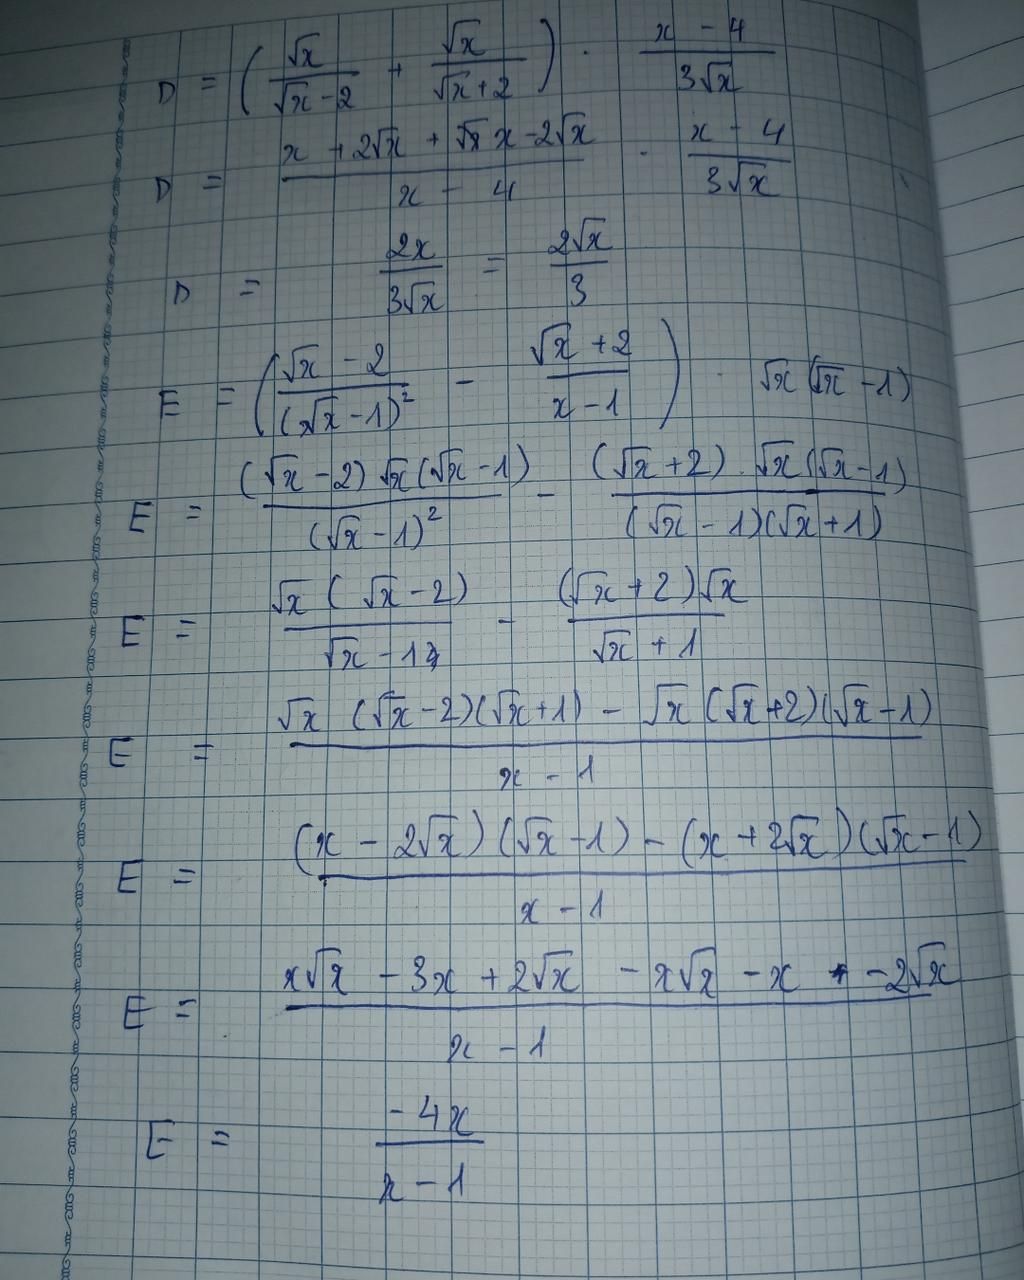 D = (√x/(√x - 2) + √x/(√x + 2)) · (x - 4)/(3√x)
D = (x + 2√x + x - 2√x)/(x - 4) · (x - 4)/(3√x)
D = 2x/(3√x) = 2√x/3
E = ((√x - 2)/(√x - 1)² - (√x + 2)/(x - 1)) · √x (√x - 1)
E = ((√x - 2) √x (√x - 1))/(√x - 1)² - ((√x + 2) . √x (√x - 1))/((√x - 1)(√x + 1))
E = (√x (√x - 2))/(√x - 1) - ((√x + 2)√x)/(√x + 1)
E = (√x (√x - 2)(√x + 1) - √x (√x + 2)(√x - 1))/(x - 1)
E = ((x - 2√x)(√x - 1) - (x + 2√x)(√x - 1))/(x - 1)
E = (x√x - 3x + 2√x - x√x - x - 2√x)/(x - 1)
E = -4x/(x - 1)